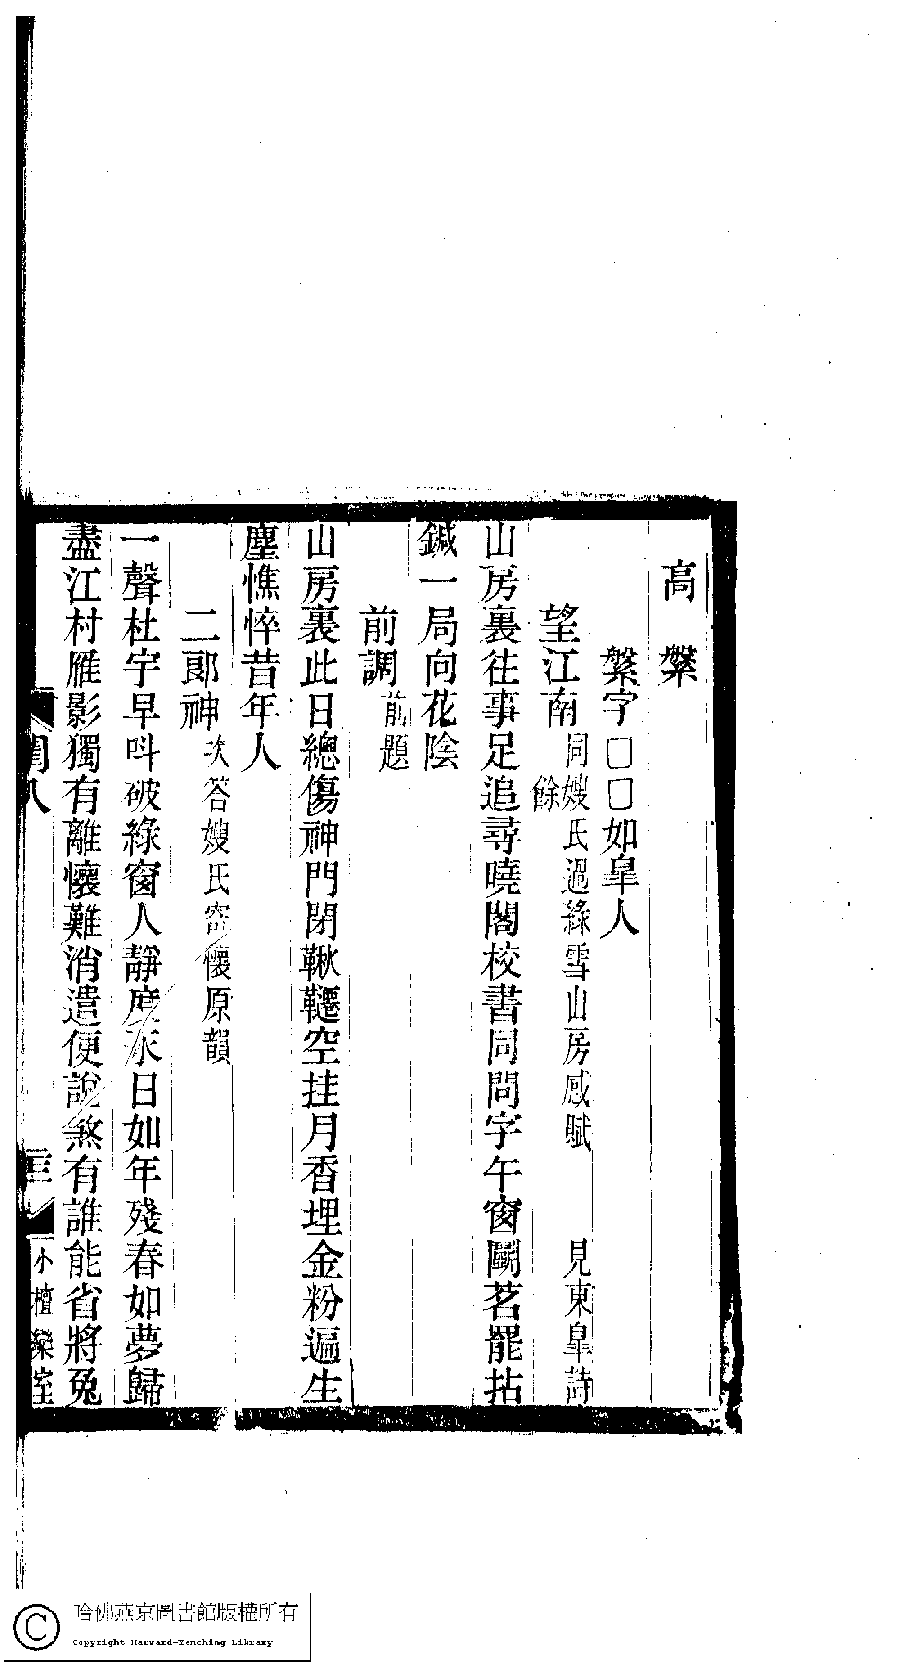 高槃
槃字□□如臯人
望江南同嫂氏過綠雪山房感賦 見東臯詩
餘
山房裏往事足追尋曉閣校書同問字午窗鬭茗罷拈
鍼一局向花陰
前調前題
山房裏此日總傷神門閉鞦韆空挂月香埋金粉遍生
塵憔悴昔年人
二郞神次答嫂氏寄懷原韻
一聲杜宇早呌破綠窗人靜度永日如年殘春如夢歸
盡江村雁影獨有離懷難消遣便說煞有誰能省將兔
閨八
小檀欒室
哈佛燕京圖書館版權所有
Copyright Harvard-Yenching Library